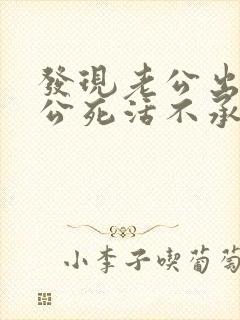 發現老公出
公死活不承
小李子喫葡萄